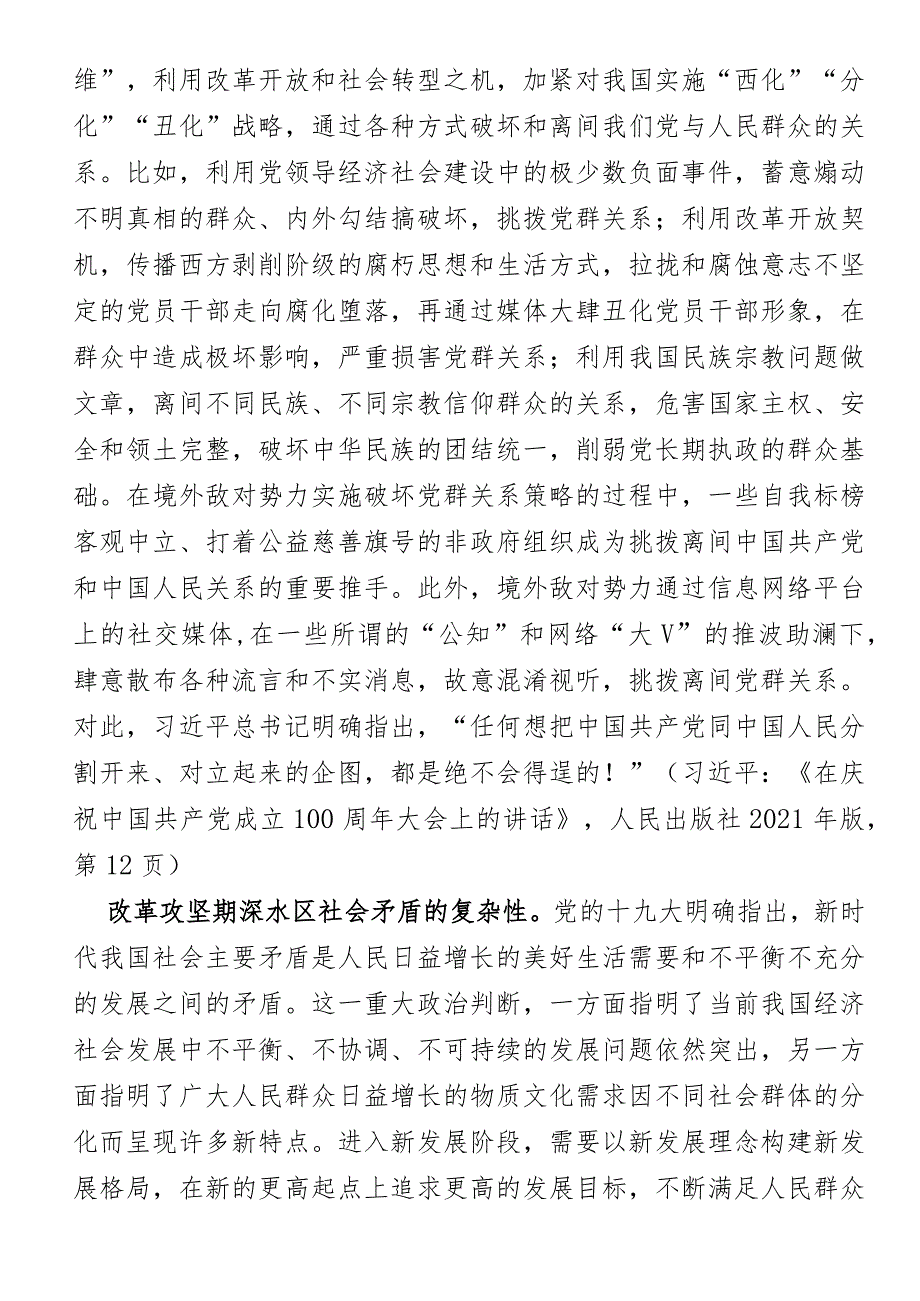 维”，利用改革开放和社会转型之机，加紧对我国实施“西化”“分
化”“丑化”战略，通过各种方式破坏和离间我们党与人民群众的关
系。比如，利用党领导经济社会建设中的极少数负面事件，蓄意煽动
不明真相的群众、内外勾结搞破坏，挑拨党群关系；利用改革开放契
机，传播西方剥削阶级的腐朽思想和生活方式，拉拢和腐蚀意志不坚
定的党员干部走向腐化堕落，再通过媒体大肆丑化党员干部形象，在
群众中造成极坏影响，严重损害党群关系；利用我国民族宗教问题做
文章，离间不同民族、不同宗教信仰群众的关系，危害国家主权、安
全和领土完整，破坏中华民族的团结统一，削弱党长期执政的群众基
础。在境外敌对势力实施破坏党群关系策略的过程中，一些自我标榜
客观中立、打着公益慈善旗号的非政府组织成为挑拨离间中国共产党
和中国人民关系的重要推手。此外，境外敌对势力通过信息网络平台
上的社交媒体,在一些所谓的“公知”和网络“大V”的推波助澜下，
肆意散布各种流言和不实消息，故意混淆视听，挑拨离间党群关系。
对此，习近平总书记明确指出，“任何想把中国共产党同中国人民分
割开来、对立起来的企图，都是绝不会得逞的！”（习近平：《在庆
祝中国共产党成立100周年大会上的讲话》，人民出版社2021年版，
第12页）
改革攻坚期深水区社会矛盾的复杂性。党的十九大明确指出，新时
代我国社会主要矛盾是人民日益增长的美好生活需要和不平衡不充分
的发展之间的矛盾。这一重大政治判断，一方面指明了当前我国经济
社会发展中不平衡、不协调、不可持续的发展问题依然突出，另一方
面指明了广大人民群众日益增长的物质文化需求因不同社会群体的分
化而呈现许多新特点。进入新发展阶段，需要以新发展理念构建新发
展格局，在新的更高起点上追求更高的发展目标，不断满足人民群众